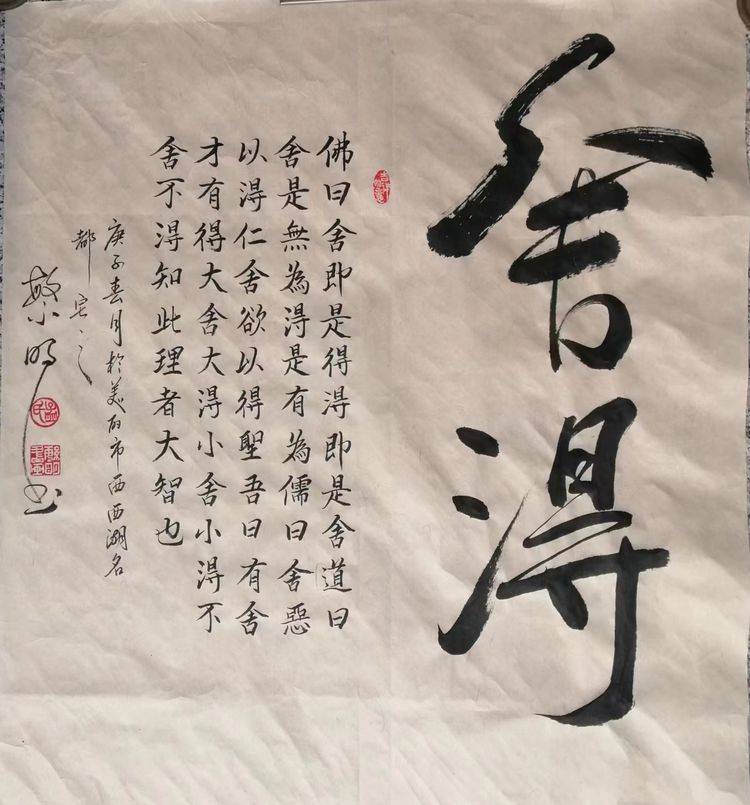 舍得
佛曰舍即是得得即是舍道曰
舍是無為得是有為儒曰舍惡
以得仁舍欲以得聖吾曰有舍
才有得大舍大得小舍小得不
舍不得知此理者大智也
庚子春月於美的市西西湖名
都
書